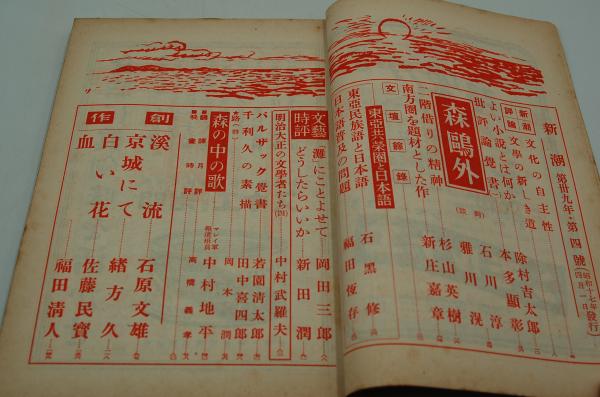 新潮 第卅九年・第四號 (昭和十七年四月一日發行)
新潮評論 文化の自主性 除村吉太郎
文學の新しき道 本多顯彰
よい小説とは何か 石川淳
批評論覺書 雅川滉
森鷗外
二階借りの精神 杉山英樹
南方圏を題材とした作 新庄嘉章
文壇餘錄
東亞共榮圏と日本語
東亞民族語と日本語 石黒修
日本語普及の問題 福田恆存
文藝時評
灘にことよせて 岡田三郎
どうしたらいいか 新田潤
明治大正の文學者たち(四) 中村武羅夫
バルザック覺書 若園清太郎
千利久の素描 田中喜四郎
路(詩) 岡本潤
森の中の歌 マレイ軍報道班員 中村地平
高橋義孝
創作
溪流 石原文雄
京城にて 緒方久
白い花 佐藤民寶
血 福田清人